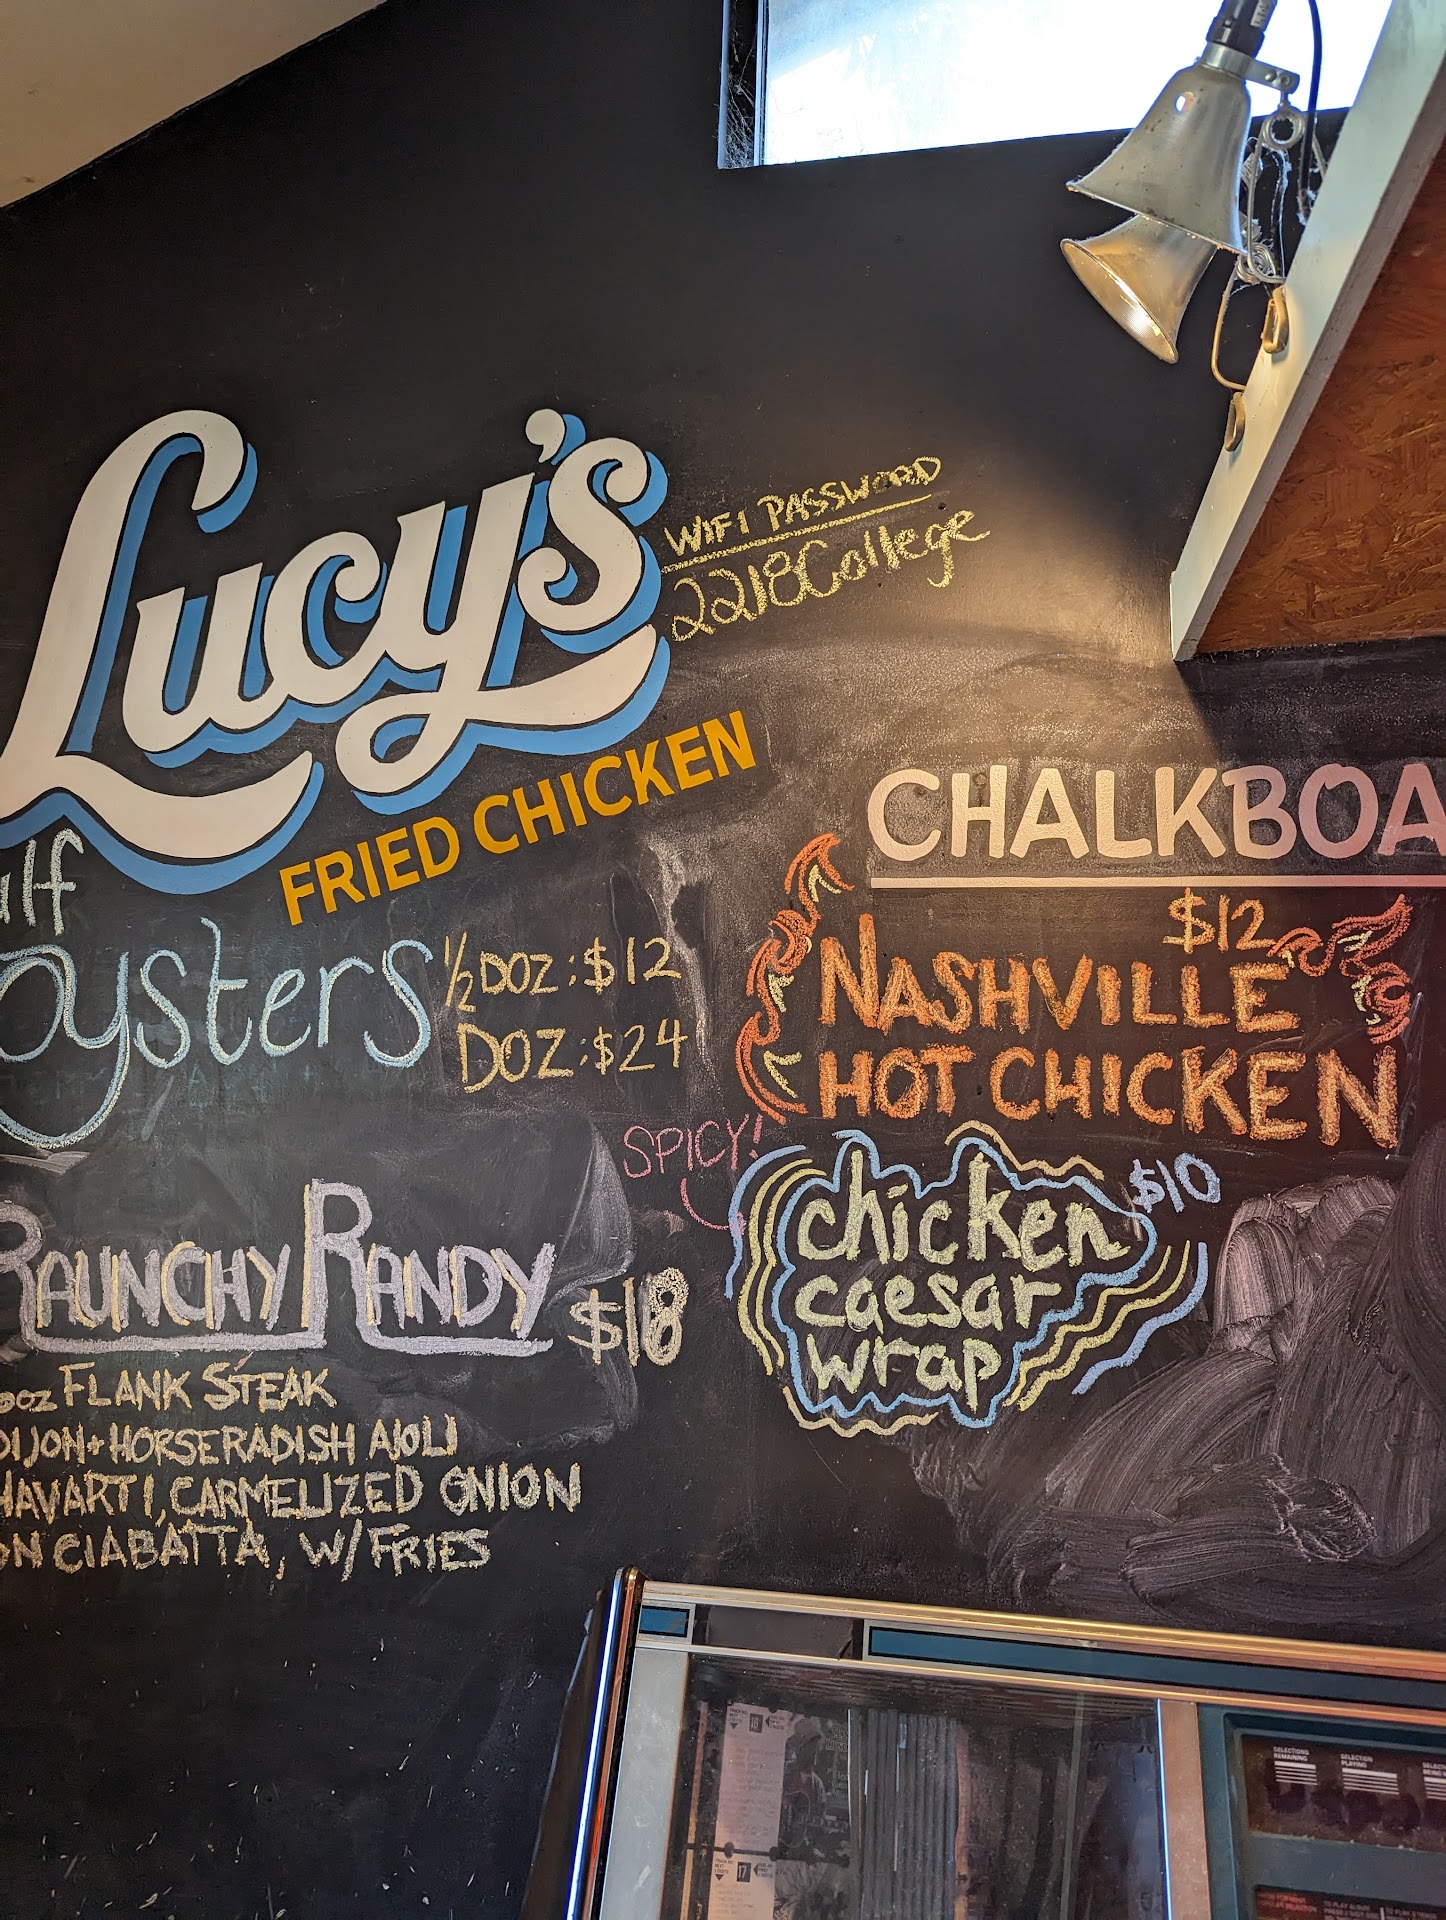 Lucy's
FRIED CHICKEN
WIFI PASSWORD
2218College
ulf
Oysters
1/2 DOZ: $12
DOZ: $24
RAUNCHY RANDY
$18
OZ FLANK STEAK
DIJON + HORSERADISH AIOLI
HAVARTI, CARMELIZED ONION
ON CIABATTA, W/ FRIES
CHALKBOA
$12
NASHVILLE
HOT CHICKEN
SPICY!
chicken
caesar
wrap
$10
SELECTIONS
REMAINING
SELECTION
PLAYING
16
17